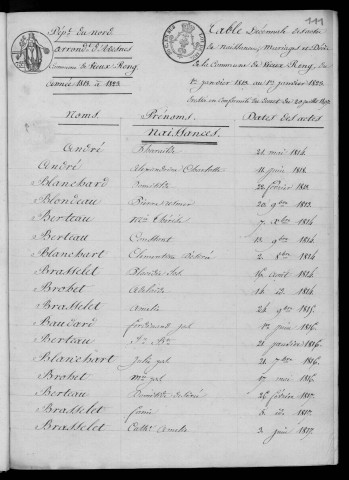 111
Dépt. du nord
arrond. d'Avesnes
Commune de Vieux Reng
année 1813 à 1823.
Table Décennale des actes
de Naissances, Mariages et Décès
de la Commune de Vieux Reng, du
1er janvier 1813 au 1er janvier 1823.
Dressée en conformité du Décret du 20 juillet 1807
Noms. Prénoms. Dates des actes
Naissances.
André 21 mai 1814.
André Alexandrine Charlotte 11 juin 1818.
Blanchard Domitile 22 février 1813.
Blondeau 20 9bre 1813.
Berteau Mie Thérèse 7 Xbre 1814
Berteau Constant 13 9bre 1814.
Blanchart Clementine Désirée 2 1814.
Brasselet 16 août 1814.
Brobet Adelaïde 14 1814.
Brasselet Amelie 24 9bre 1815.
Baudard ferdinand 1er juin 1816.
Berteau 21 janvier 1816.
Blanchart Julie 21 7bre 1816.
Brobet 17 mai 1816.
Berteau Domitile Désirée 26 février 1817.
Brasselet 6 1817.
Brasselet Cathe Amelie 3 juin 1817.